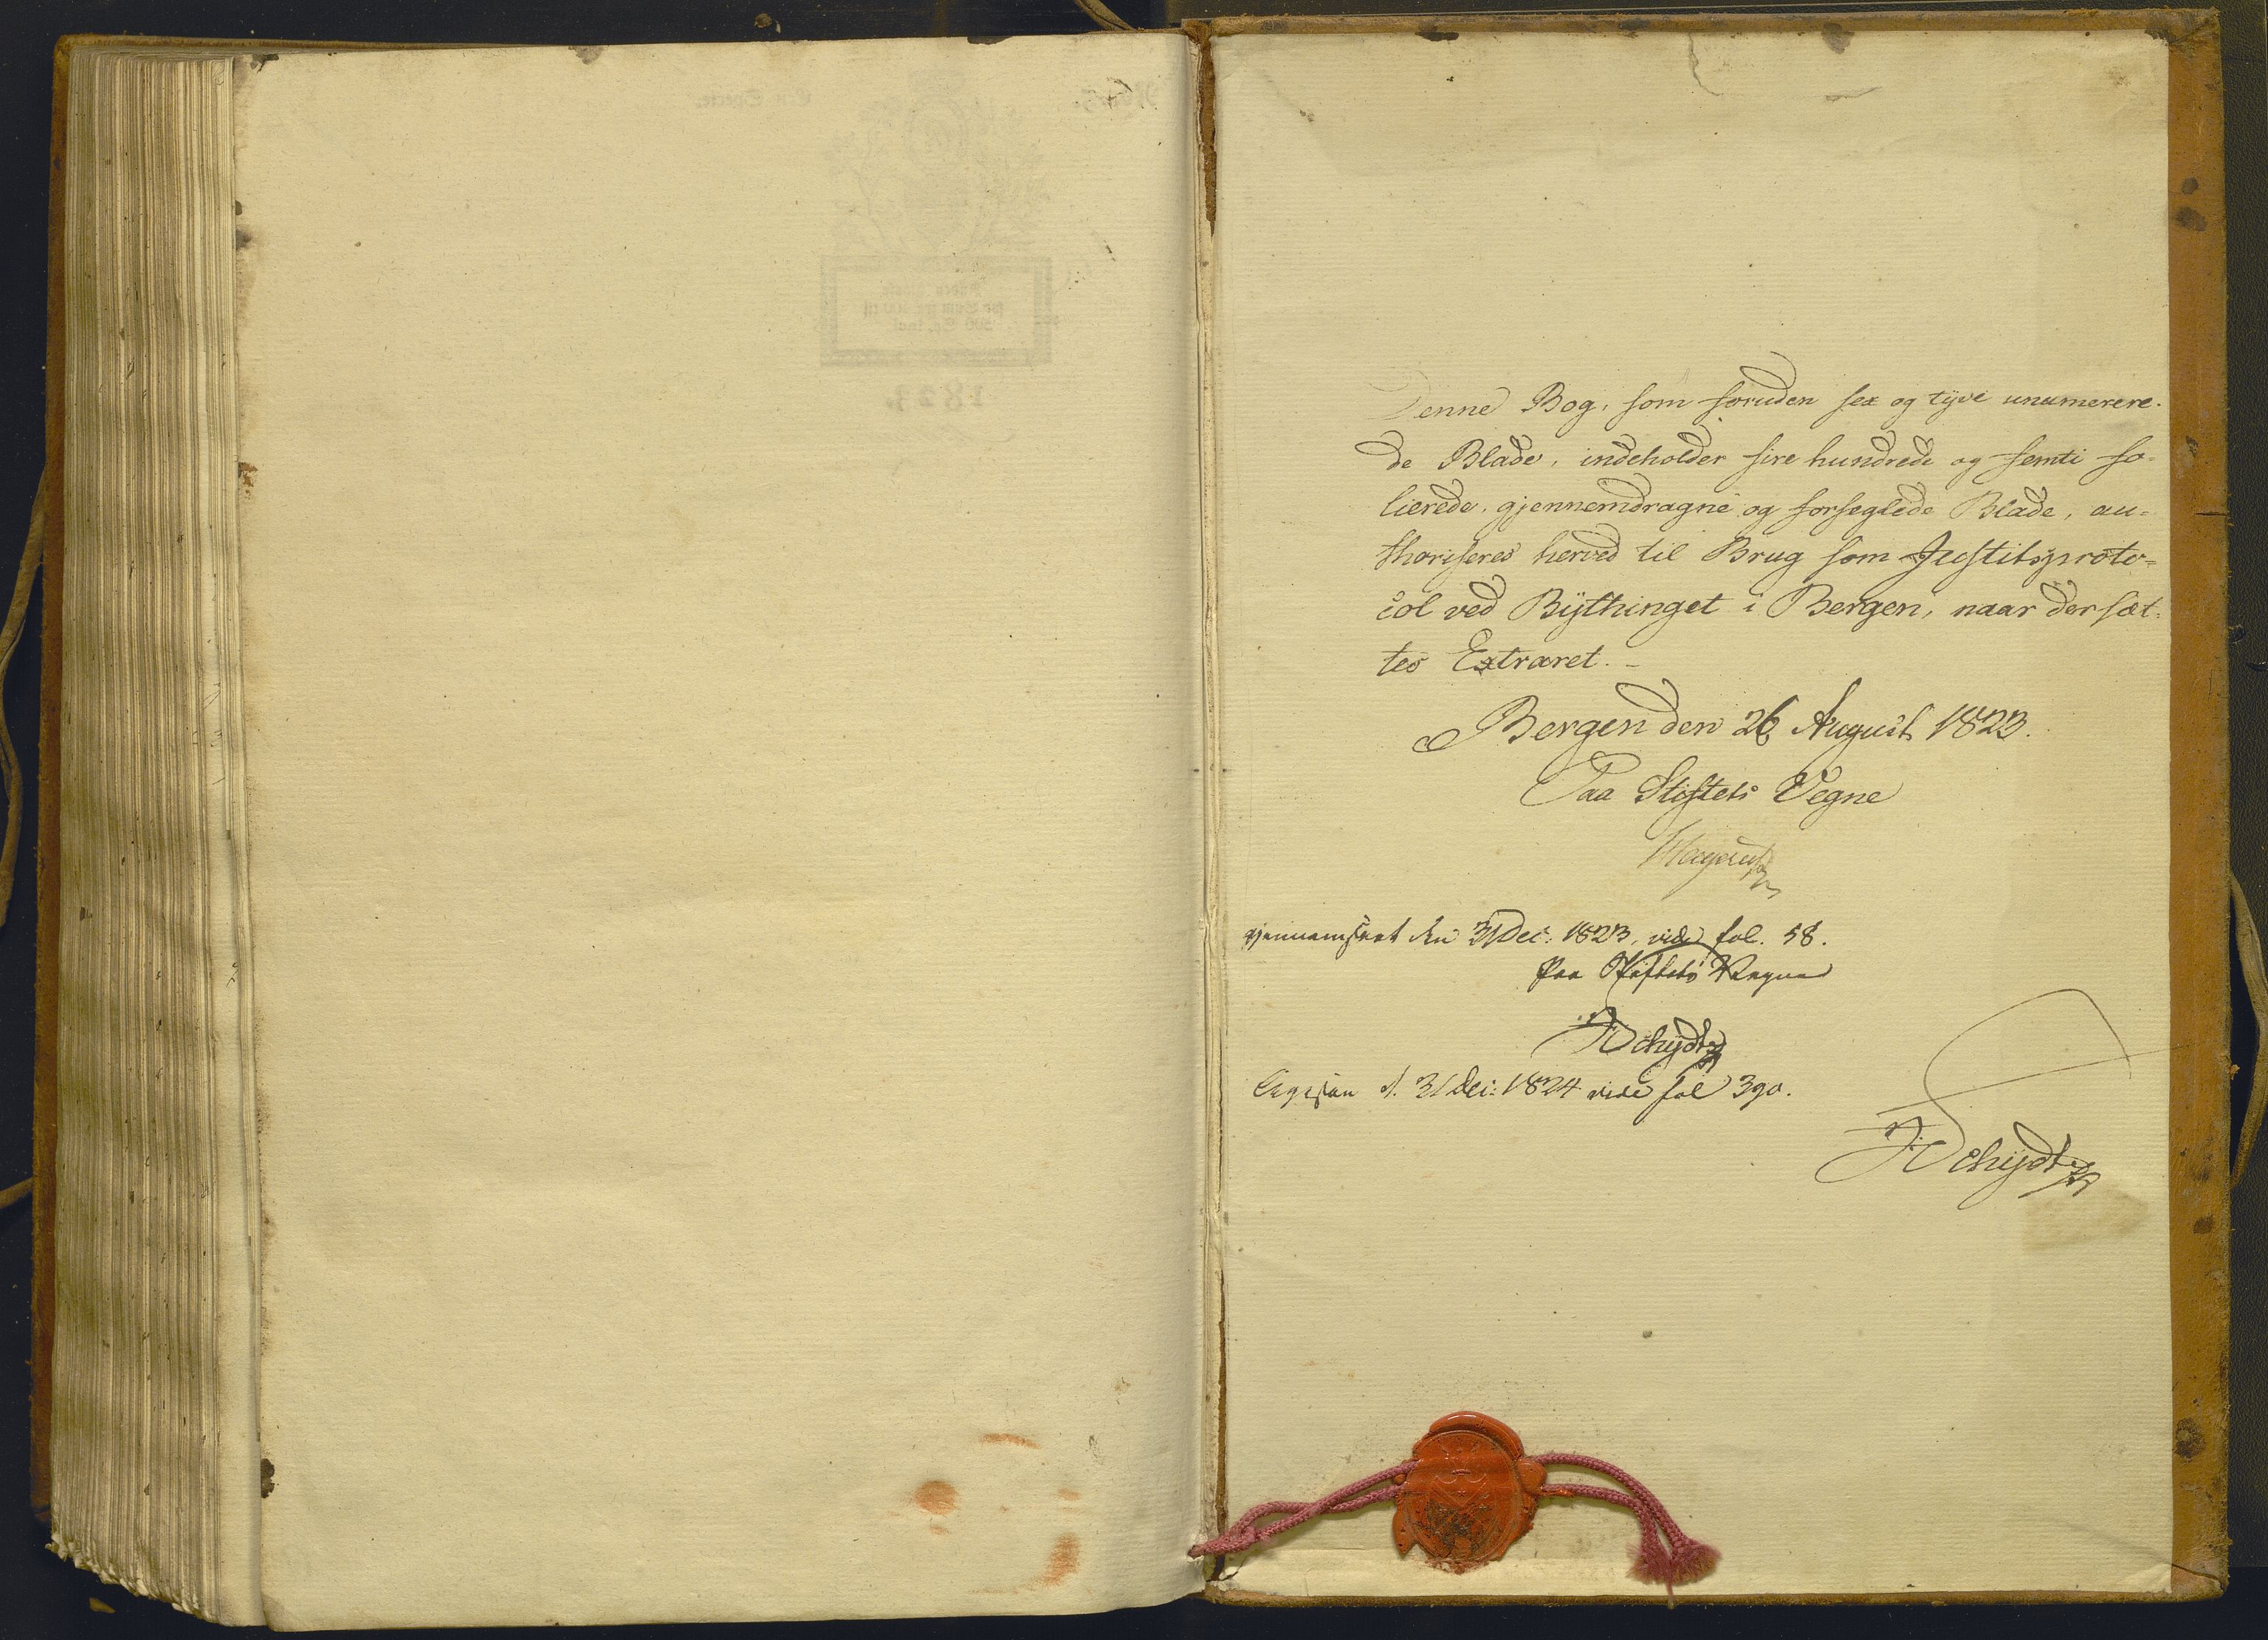 Denne Bog, som foruden sex og tyve unumerere-
de Blade, indeholder fire hundrede og femti fo-
lierede, gjennemdragne og forseglede Blade, au-
thoriseres herved til Brug som Justitsproto-
col ved Bythinget i Bergen, naar der sæt-
tes Extraret.
Bergen den 26 August 1823.
Paa Stiftets Vegne
gjennemseet den 31 Dec: 1823, vide fol. 58.
Paa Stiftets Vegne
JSchydtz
Ligesaa d. 31 Dec: 1824 vide fol 390.
JSchydtz
1823.